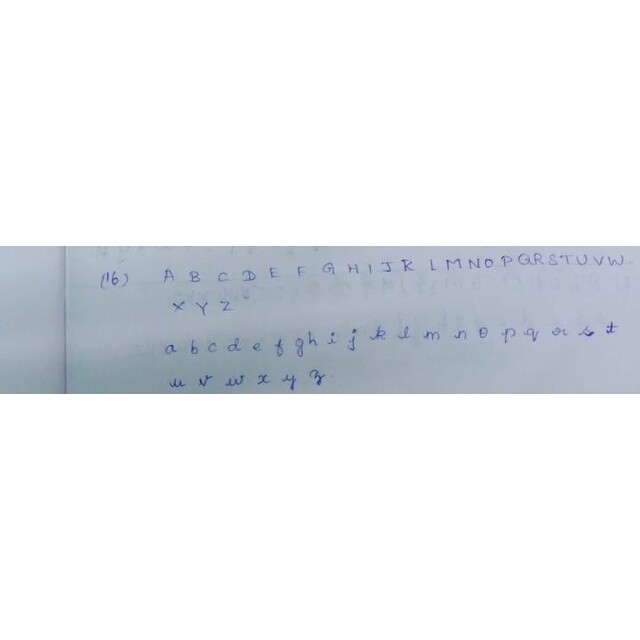 (16) A B C D E F G H I J K L M N O P Q R S T U V W
X Y Z
a b c d e f g h i j k l m n o p q r s t
u v w x y z.